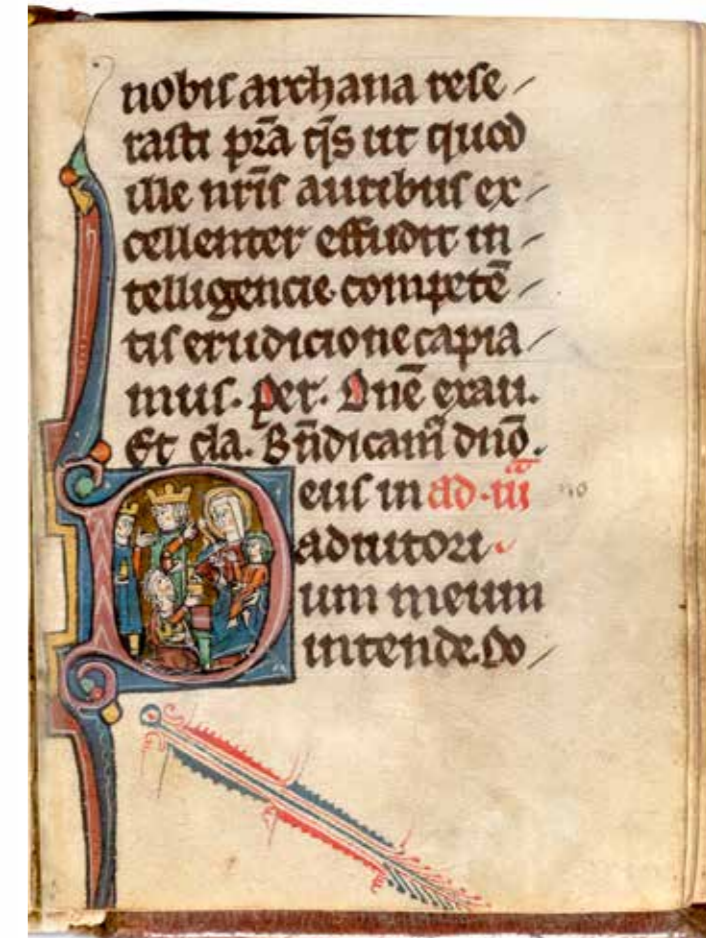 nobis archana rese/
rasti p̄ra q̄s ut quod
ille nr̄is auribus ex/
cellenter effudit in/
telligencie competē/
tis erudicione capia/
mus. per. Dn̄e exau.
Et cla. Bn̄dicam⁹ dn̄o.
Deus in ad .iii.ᵃ
adiutori
um meum
intende. Do/